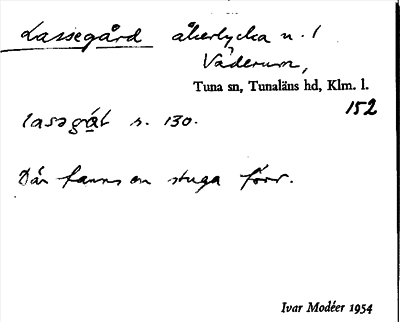 Lassegård åkerlycka n. 1
Väderum,
Tuna sn, Tunaläns hd, Klm. l.
152
lasəgɑ̠́t s. 130.
Där fanns en stuga förr.
Ivar Modéer 1954